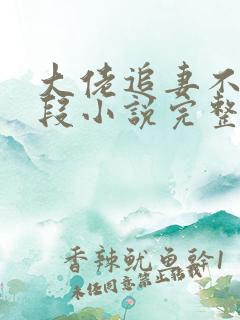 大佬追妻不
段小说完整
香辣鱿鱼干1
未经同意禁止转载